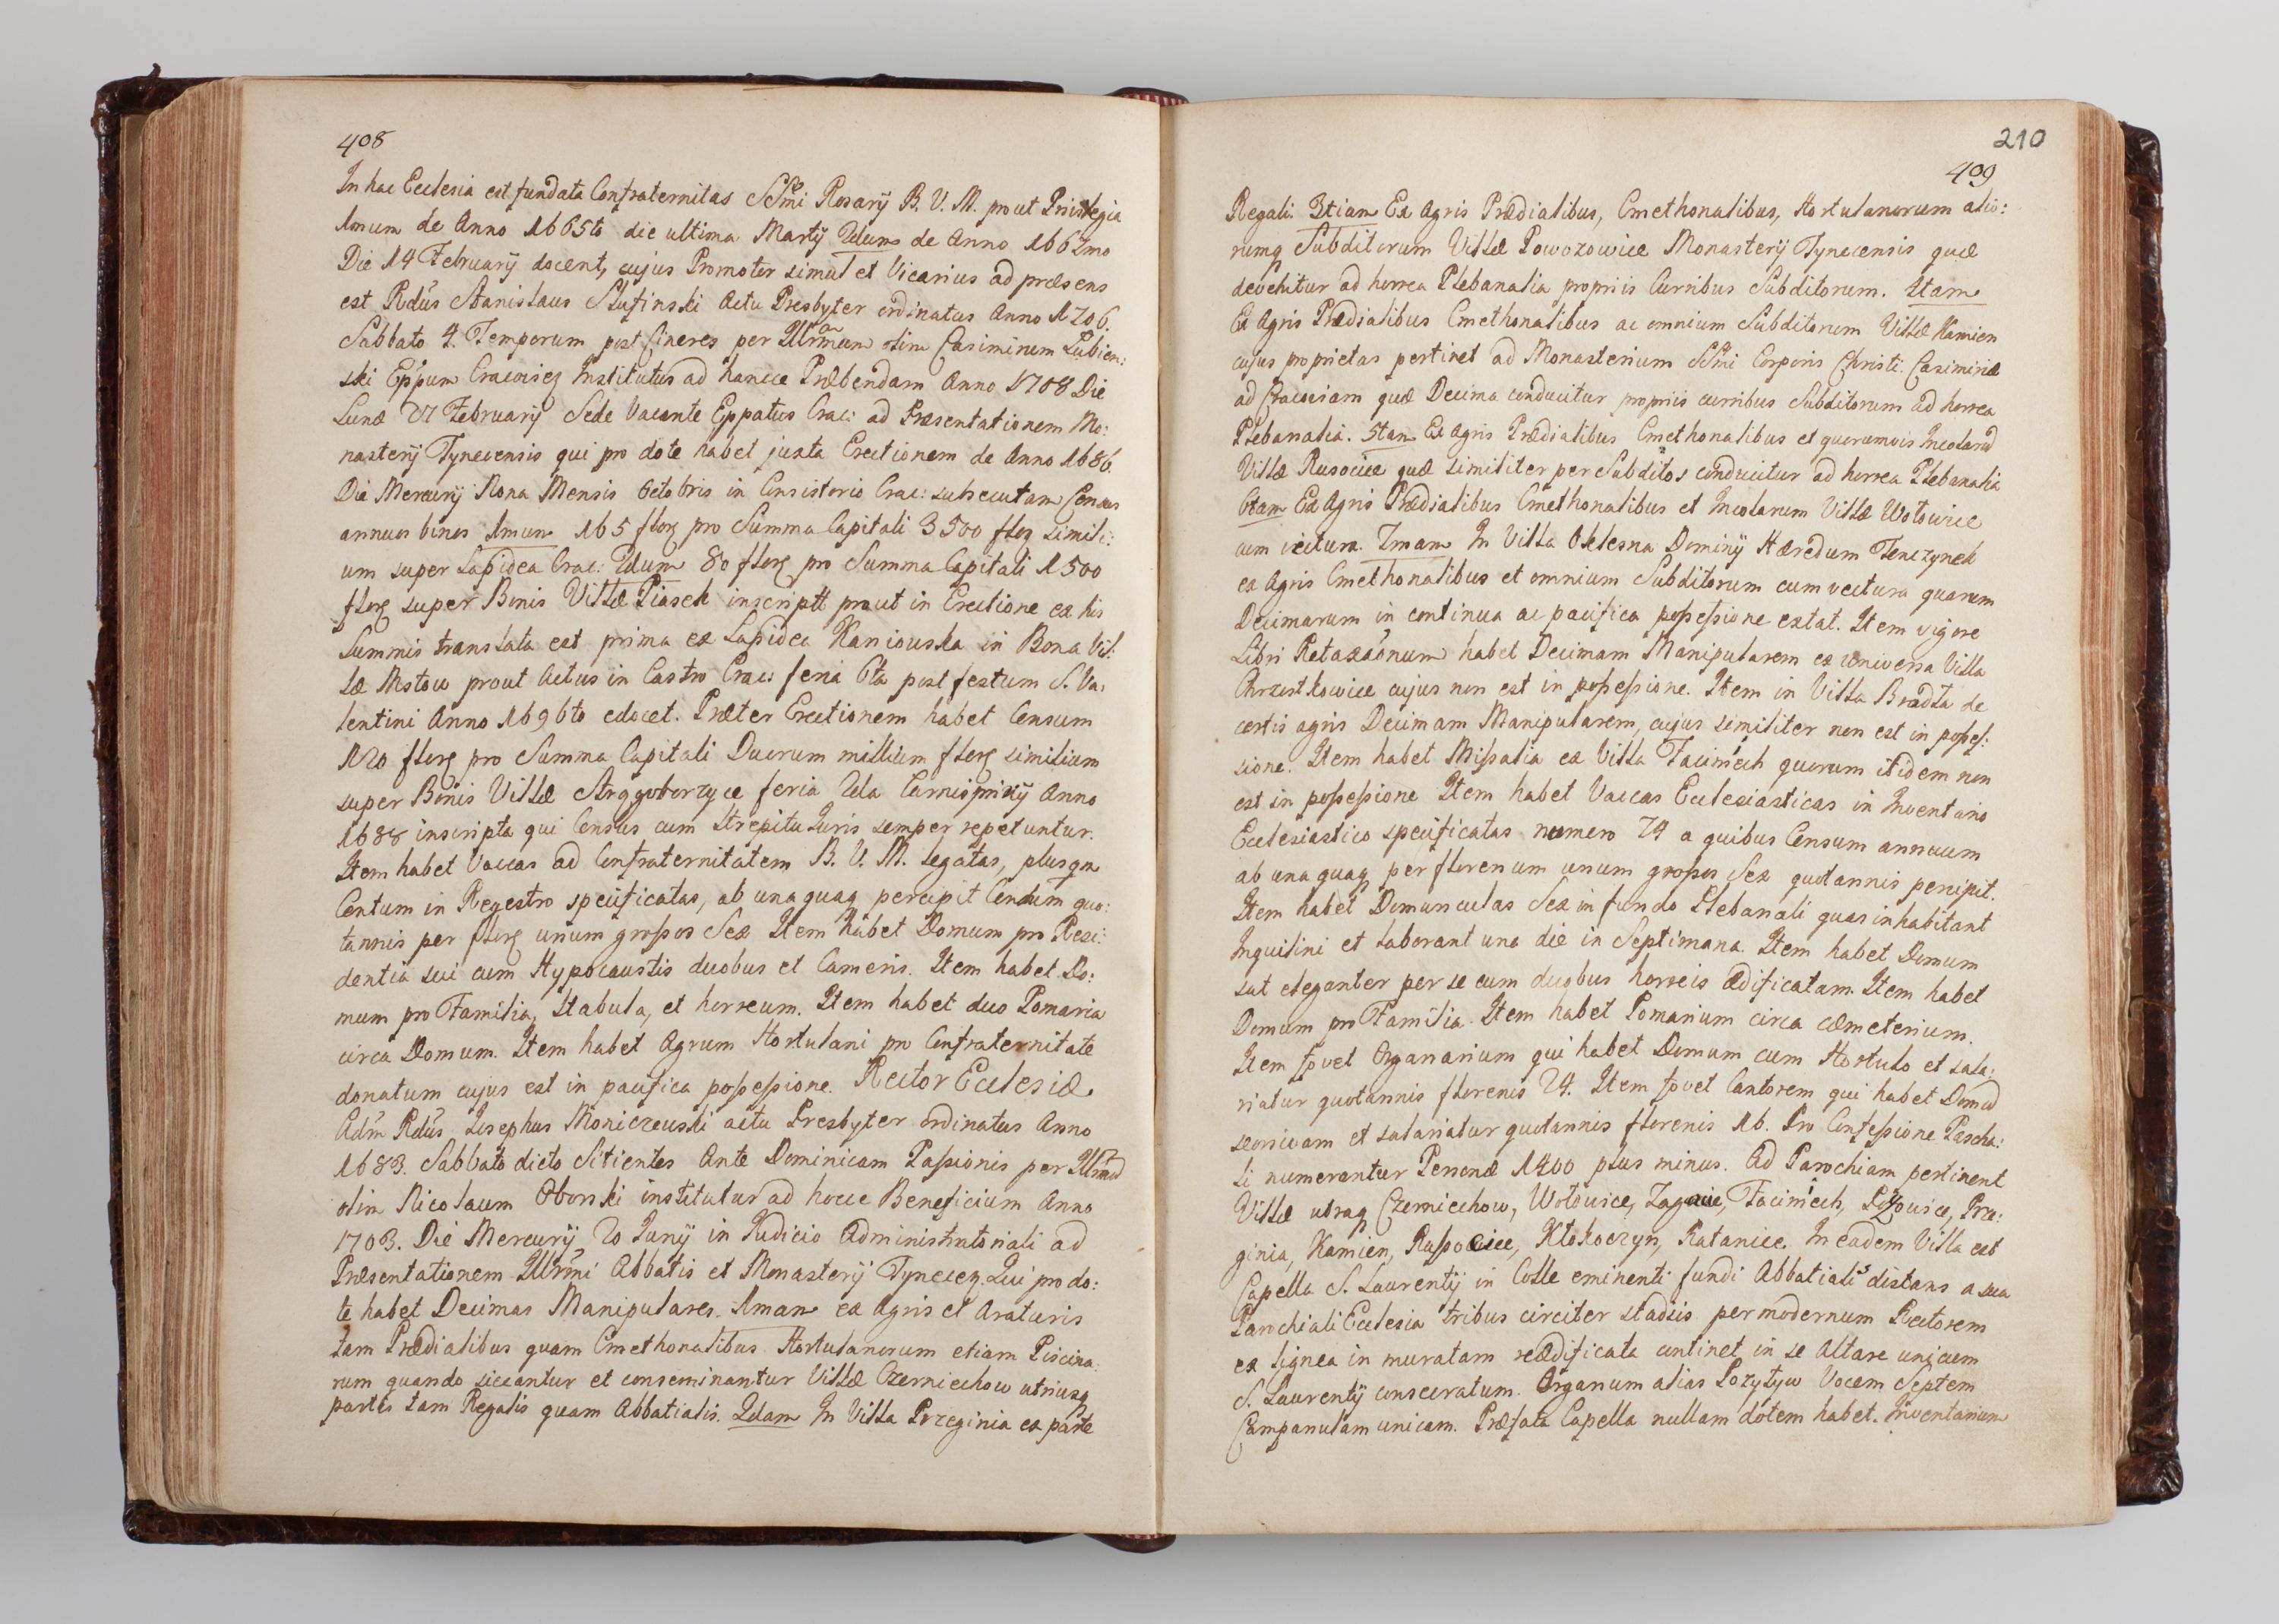 408
In hac Ecclesia est fundata Confraternitas SSmi Rosarij B. V. M. prout Privilegia
1mum de Anno 1665to die ultima Martij 2dum de Anno 1662mo
Die 14 Februarij docent, cujus Promotor simul et Vicarius ad præsens
est Rdus Stanislaus Slufinski Actu Presbyter ordinatus Anno 1706.
Sabbato 4. Temporum post Cineres per Illrmum olim Casimirum Lubien:
ski Eppum Cracovieȝ Institutus ad hancce Præbendam Anno 1708 Die
Lunæ 27 Februarij Sede Vacante Eppatus Crac: ad Præsentationem Mo:
nasterij Tynecensis qui pro dote habet juxta Erectionem de Anno 1686.
Die Mercurij Nona Mensis Octobris in Consistorio Crac: subsecutam Census
annuos binos 1mum 165 florȝ pro Summa Capitali 3300 florȝ simili:
um super Lapidea Crac: 2dum 80 florȝ pro Summa Capitali 1500
florȝ super Bonis Villæ Piasek inscriptt prout in Erectione ex his
Summis translata est prima ex Lapidea Kaniowska in Bona Vil:
læ Mstow prout Actus in Castro Crac: feria 6ta post festum S. Va:
lentini Anno 1696to edocet. Præter Erectionem habet Censum
120 florȝ pro Summa Capitali Duorum millium florȝ similium
super Bonis Villæ feria 2da Carnisprivij Anno
1688 inscripta qui Census cum strepitu Iuris semper repetuntur.
Item habet Vaccas ad Confraternitatem B. V. M. legatas, plusqm
Centum in Regestro specificatas, ab unaquaq percipit Censum quo:
tannis per florȝ unum grossos Sex Item habet Domum pro Resi:
dentia sui cum Hypocaustis duobus et Cameris. Item habet Do:
mum pro Familia, Stabula, et horreum. Item habet duo Pomaria
circa Domum. Item habet Agrum Hortulani pro Confraternitate
donatum cujus est in pacifica possessione. Rector Ecclesiæ.
Adm Rdus Iosephus Moniczewski actu Presbyter ordinatus Anno
1683. Sabbato dicto Sitientes Ante Dominicam Passionis per Illrmu
olim Nicolaum Oborski institutus ad hocce Beneficium Anno
1703. Die Mercurij 20 Iunij in Iudicio Administratoriali ad
Præsentationem Illrmi Abbatis et Monasterij Tyneceȝ. Qui pro do:
te habet Decimas Manipulares. 1mam ex Agris et Araturis
tam Prædialibus quam Cmethonalibus Hortulanorum etiam Piscina:
rum quando siccantur et conseminantur Villæ Czerniechow utriusq
partis tam Regalis quam Abbatialis. 2dam In Villa Przeginia ex parte
210
409
Regali. 3tiam Ex Agris Prædialibus, Cmethonalibus, Hortulanorum alio:
rumq Subditorum Villæ Powozowice Monasterij Tynecensis quæ
devehitur ad horrea Plebanalia propriis Curribus Subditorum. 4tam
Ex Agris Prædialibus Cmethonalibus ac omnium Subditorum Villæ Kamien
cujus proprietas pertinet ad Monasterium SSmi Corporis Christi. Casimiriæ
ad Cracoviam quæ Decima conducitur propriis curribus Subditorum ad horrea
Plebanalia. 5tam Ex Agris Prædialibus Cmethonalibus et quorumvis Incolarũ
Villæ Rusocice quæ similiter per Subditos conducitur ad horrea Plebanalia
6tam Ex Agris Prædialibus Cmethonalibus et Incolarum Villæ Wołowice
cum vectura. 7mam In Villa Oklesna Dominij Hæredum Tenczynek
ex Agris Cmethonalibus et omnium Subditorum cum vectura quarum
Decimarum in continua ac pacifica possessione extat. Item vigore
Libri Retaxaonum habet Decimam Manipularem ex universa Villa
Chrzostkowice cujus non est in possessione. Item in Villa Brodła de
certis agris Decimam Manipularem, cujus similiter non est in posses:
sione. Item habet Missalia ex Villa Facimiech quorum itidem non
est in possessione Item habet Vaccas Ecclesiasticas in Inventario
Ecclesiastico specificatas numero 74 a quibus Censum annuum
ab unaquaq per florenum unum grossos Sex quotannis percipit.
Item habet Domunculas Sex in fundo Plebanali quas inhabitant
Inquilini et laborant una die in Septimana. Item habet Domum
sat eleganter per se cum duobus horreis ædificatam. Item habet
Domum pro Familia. Item habet Pomarium circa cæmeterium.
Item fovet Organarium qui habet Domum cum Hortulo et sala:
riatur quotannis florenis 24. Item fovet Cantorem qui habet Domũ
seorsivam et salariatur quotannis florenis 16. Pro Confessione Pascha:
li numerantur Personæ 1400 plus minus. Ad Parochiam pertinent
Villæ utraq Czerniechow, Wołowice, Zagacie, Facimiech, Prze:
ginia, Kamien, Russocice, Kłokoczyn, Rataniec. In eadem Villa est
Capella S. Laurentij in Colle eminenti fundi Abbatialis distans a sua
Parochiali Ecclesia tribus circiter stadiis per modernum Rectorem
ex lignea in muratam reædificata continet in se Altare unicum
S. Laurentij consecratum. Organum alias Pozytyw Vocem Septem
Campanulam unicam. Præfata Capella nullam dotem habet. Inventarium